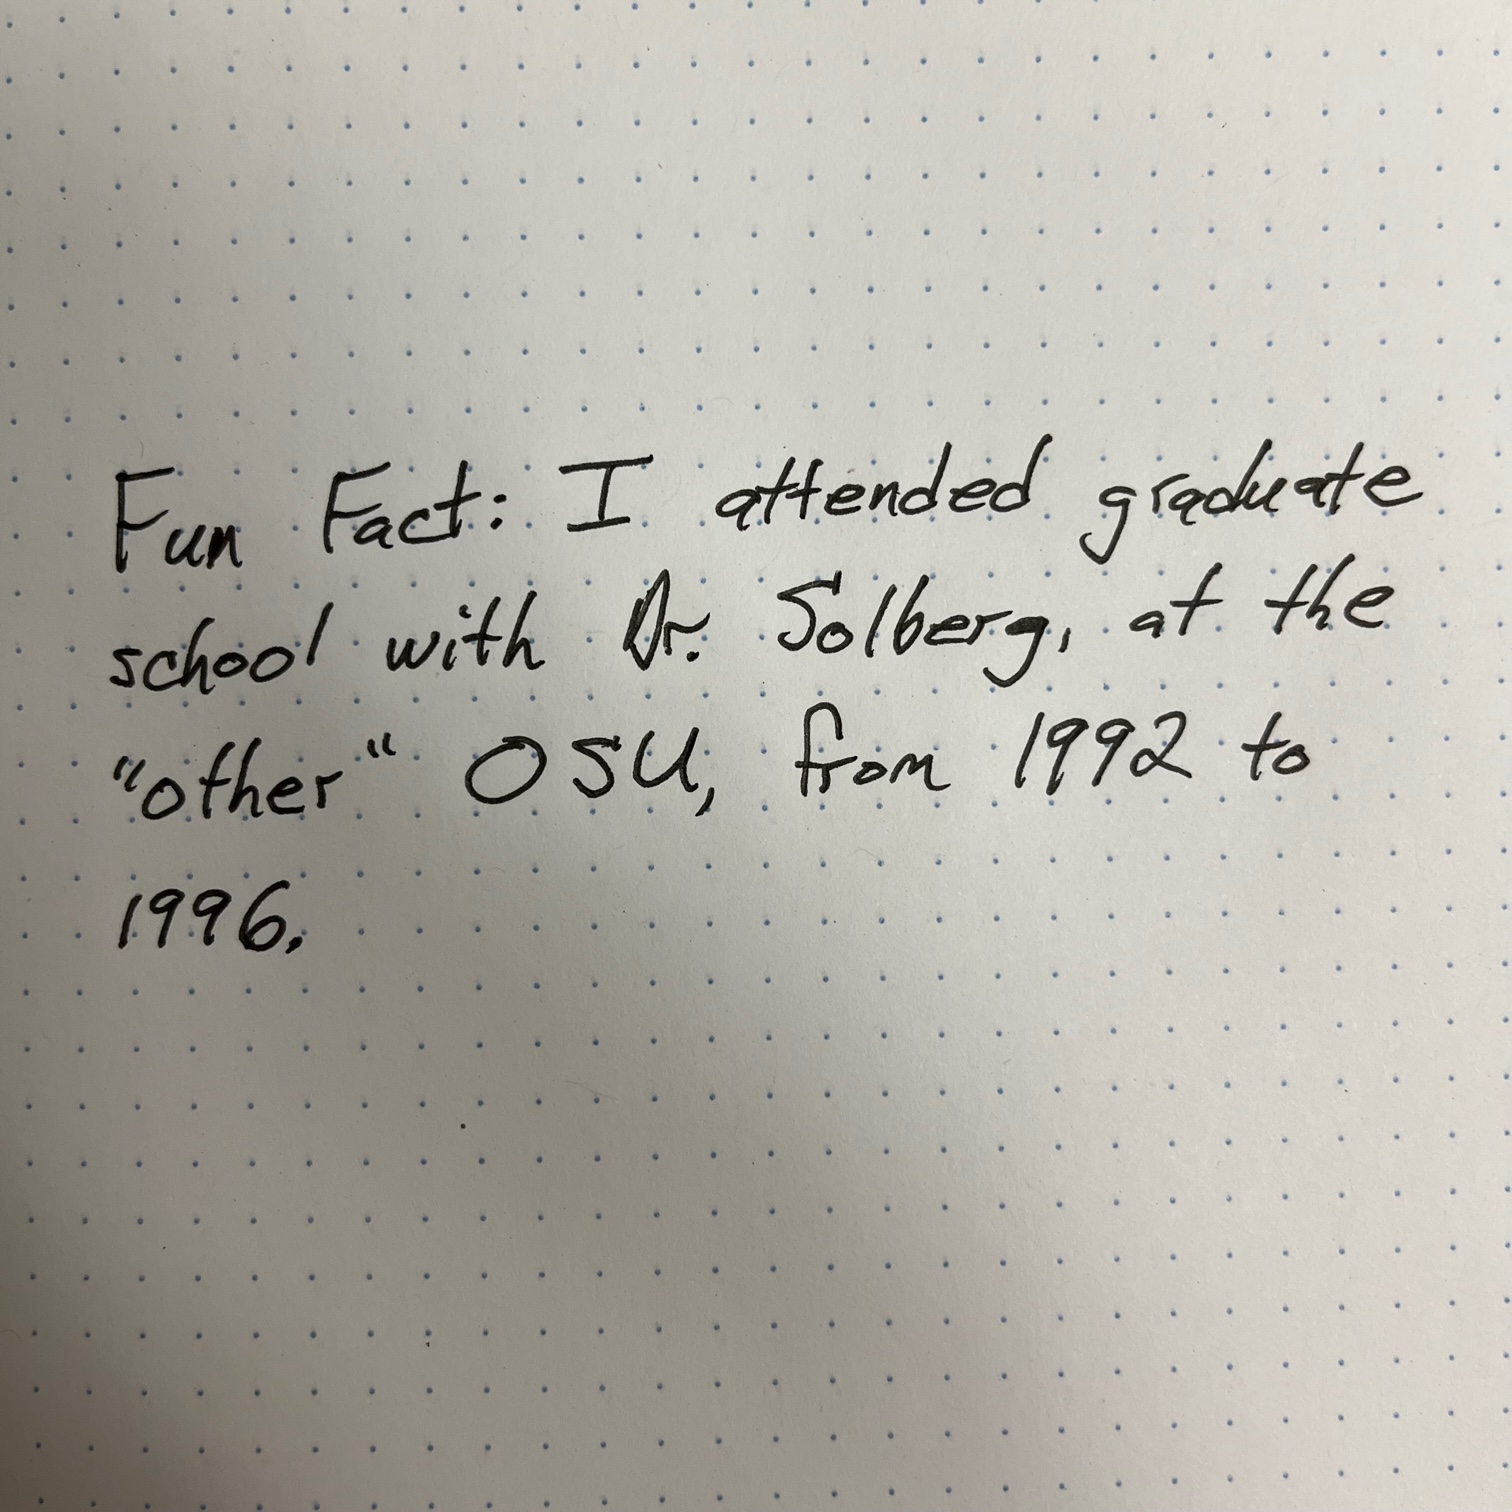 Fun Fact: I attended graduate
school with Dr. Solberg, at the
"other" OSU, from 1992 to
1996.